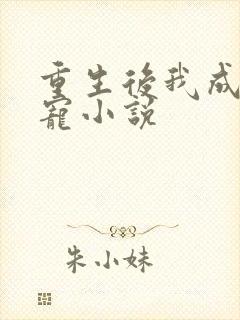 重生後我成
寵小説
朱小妹